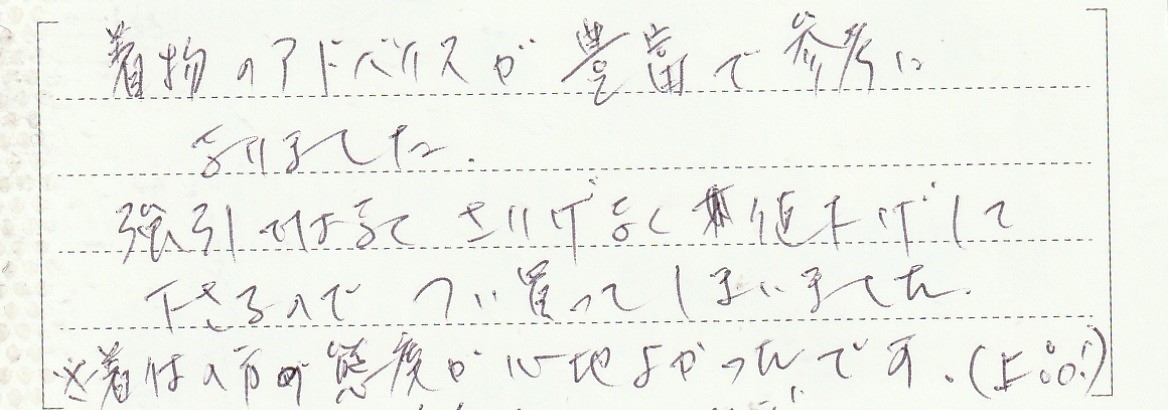 着物のアドバイスが豊富で参考に
なりました.
強引ではなくて さりげなく 値下げして
下さるので つい買ってしまいました.
※着付の方の態度が心地よかったんです.